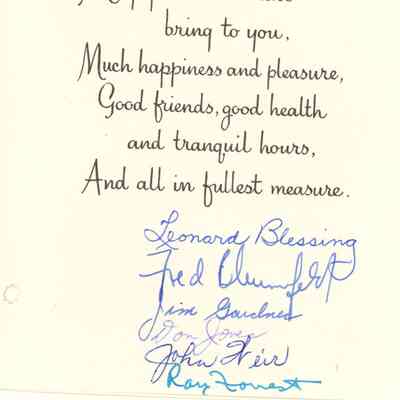 bring to you,
Much happiness and pleasure,
Good friends, good health
and tranquil hours,
And all in fullest measure.
Leonard Blessing
Fred
Jim Gardner
Don Jones
John Weir
Ray Forrest